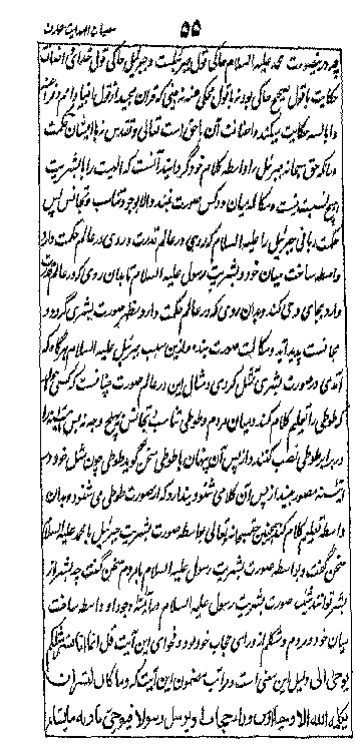 ۵۵
چه درینصورت محمد علیه السلام حاکی قول جبرئیلست و جبرئیل حاکی قول خدای و اضافت
حکایت با قول صحیح حاکی بود نه با قول محکی عنه نه بینی که قرآن مجید از قول انبیا و امم و فراعنه
و ابالسه حکایت میکند و اضافت آن با حق است تعالی و تقدس نه با ایشان حکمت
در آنکه حق سبحانه جبرئیل را واسطه کلام خود گردانید آنست که الهیت را با بشریت
هیچ نسبت نیست و مکالمه میان دو کس صورت نبندد الا بوجود تناسب و تجانس پس
حکمت ربانی جبرئیل را علیه السلام که روی در عالم قدرت و روی در عالم حکمت دارد
واسطه ساخت میان خود و بشریت رسول علیه السلام تا بدان روی که در عالم قدرت
دارد وحی می کند و بدان روی که در عالم حکمت دارد بنظر صورت بشری گردد و
مجانست پدید آید و مکالمت صورت بندد و ازین سبب جبرئیل علیه السلام هرگاه که
آمدی در صورت بشری تمثل کردی و مثال این در عالم صورت چنانست که کسی خواهد
که طوطی را تعلیم کلام کند و میان مردم و طوطی تناسب و تجانس بهیچ وجه نه پس آئینه را
در برابر طوطی نصب کنند و از پس آن پنهان با طوطی سخن گوید طوطی چون مثل خود در
آئینه مصور بیند از پس آن کلامی شنود پندارد که از صورت طوطی می شنود و بدان
واسطه تعلیم کلام کند همچنین حق سبحانه تعالی بواسطه صورت بشریت جبرئیل با محمد علیه السلام
سخن گفت و بواسطه صورت بشریت رسول علیه السلام با مردم سخن گفت چه بشر از
بشر تواند شنید صورت بشریت رسول علیه السلام در آئینه وجود او واسطه ساخت
میان خود و مردم و متکلم از ورای حجاب خود بود و فحوای این آیت قل انما انا بشر مثلکم
یوحی الی دلیل این معنی است و مراتب مضمون این آیت که وما کان لبشر ان
یکلمه الله الا وحیا او من وراء حجاب او یرسل رسولا فیوحی باذنه ما یشاء